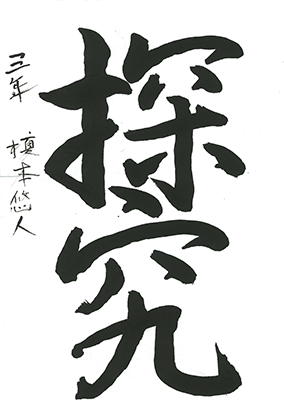 探究
三年 榎本悠人